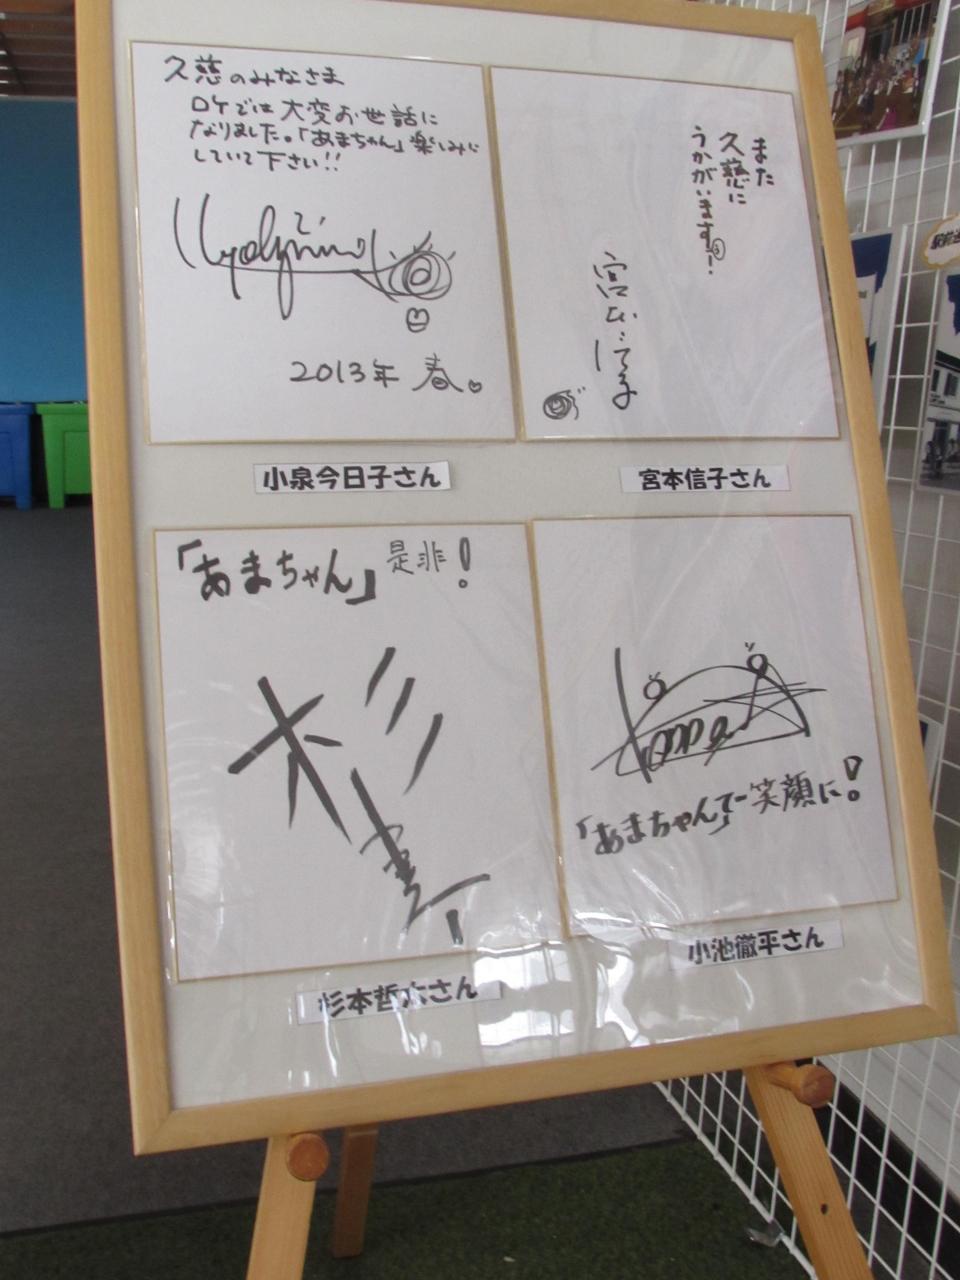 久慈のみなさま
ロケでは大変お世話に
なりました。「あまちゃん」楽しみに
していて下さい!!
2013年 春
小泉今日子さん
また
久慈に
うかがいます!
宮本信子さん
「あまちゃん」是非!
杉本哲太さん
「あまちゃん」で笑顔に!
小池徹平さん
駅前